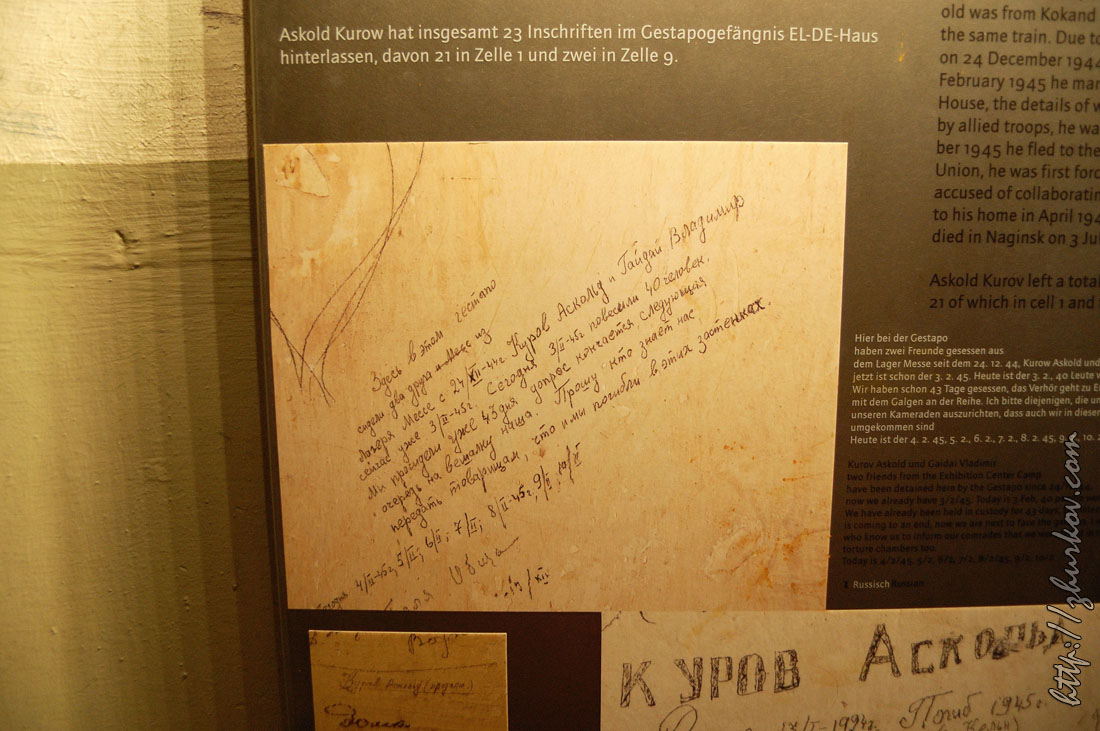 Askold Kurow hat insgesamt 23 Inschriften im Gestapogefängnis EL-DE-Haus
hinterlassen, davon 21 in Zelle 1 und zwei in Zelle 9.
old was from Kokand
the same train. Due to
on 24 December 1944
February 1945 he mar
House, the details of w
by allied troops, he wa
ber 1945 he fled to the
Union, he was first forc
accused of collaboratin
to his home in April 194
died in Naginsk on 3 Jul
Askold Kurov left a total
21 of which in cell 1 and
Здесь в этом гестапо
сидели два друга из
лагеря Мессе с 24/XII-44г Куров Аскольд и Гайдай Владимир
сейчас уже 3/II-45г. Сегодня 3/II-45г. повесили 40 человек.
Ми просидели уже 43 дня допрос кончается следующая
очередь на вешалку наша. Прошу кто знает нас
передать товарищам, что и ми погибли в этих застенках.
4/II-45г, 5/II; 6/II; 7/II; 8/II-45г, 9/II, 10/II
Hier bei der Gestapo
haben zwei Freunde gesessen aus
dem Lager Messe seit dem 24. 12. 44, Kurow Askold und
jetzt ist schon der 3. 2. 45. Heute ist der 3. 2., 40 Leute
Wir haben schon 43 Tage gesessen, das Verhör geht zu E
mit dem Galgen an der Reihe. Ich bitte diejenigen, die un
unseren Kameraden auszurichten, dass auch wir in diesen
umgekommen sind
Heute ist der 4. 2. 45, 5. 2., 6. 2., 7. 2., 8. 2. 45, 9. 2., 10. 2
Kurov Askold und Gaidai Vladimir
two friends from the Exhibition Center Camp
have been detained here by the Gestapo since 24/
now we already have 3/2/45. Today is 3 Feb, 40 pe
We have already been held in custody for 43 days,
is coming to an end, now we are next to face the
who know us to inform our comrades that we
torture chambers too.
Today is 4/2/45, 5/2, 6/2, 7/2, 8/2/45, 9/2, 10/2
1 Russisch Russian
Куров Аскольд
КУРОВ Аскольд
Погиб 1945г.
http://zhurkov.com